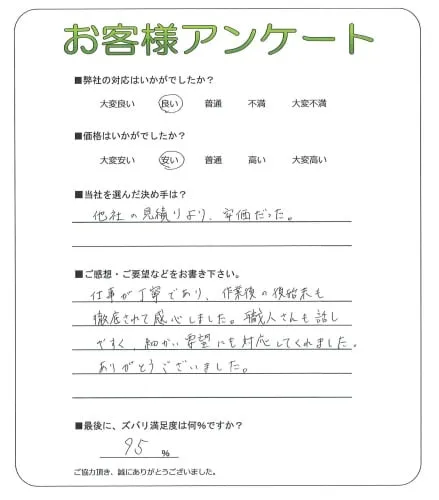 お客様アンケート
■弊社の対応はいかがでしたか？
大変良い 良い 普通 不満 大変不満
■価格はいかがでしたか？
大変安い 安い 普通 高い 大変高い
■当社を選んだ決め手は？
他社の見積りより、安価だった。
■ご感想・ご要望などをお書き下さい。
仕事が丁寧であり、作業後の後始末も
徹底されて感心しました。職人さんも話し
やすく、細かい要望にも対応してくれました。
ありがとうございました。
■最後に、ズバリ満足度は何%ですか？
95 %
ご協力頂き、誠にありがとうございました。